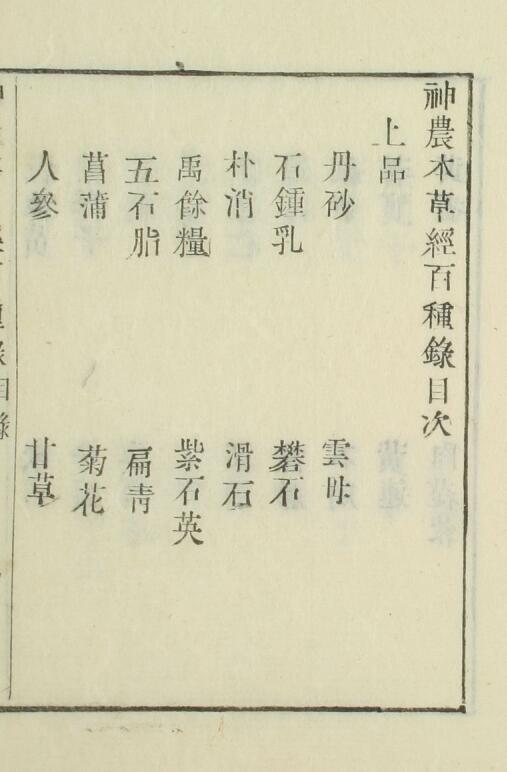 神農本草經百種錄目次
上品
丹砂 雲母
石鍾乳 礬石
朴消 滑石
禹餘糧 紫石英
五石脂 扁青
菖蒲 菊花
人參 甘草